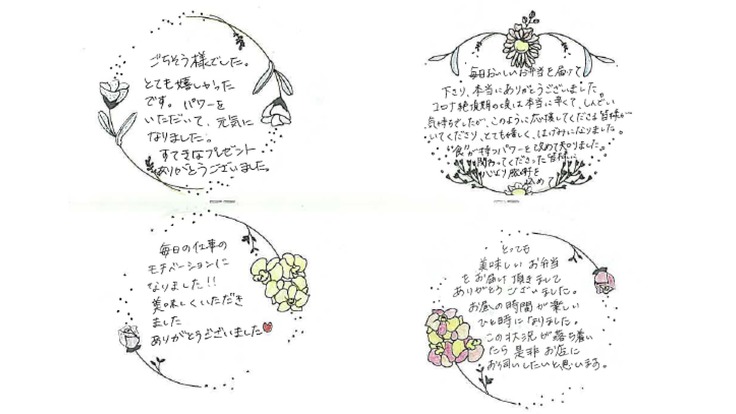 ごちそう様でした。
とても嬉しかった
です。パワーを
いただいて、元気に
なりました。
すてきなプレゼント
ありがとうございました。
毎日おいしいお弁当を届けて
下さり、本当にありがとうございました。
コロナ絶頂期の夜は本当に辛くて、しんどい
気持ちでしたが、このように応援してくださる皆様が
いてくださり、とても嬉しく、はげみになりました。
"食"が持つパワーを改めて知りました。
関わってくださった皆様に
心より感謝を
込めて
毎日の仕事の
モチベーションに
なりました!!
美味しくいただき
ました
ありがとうございました
とっても
美味しいお弁当
をお届け頂きまして
ありがとうございました。
お昼の時間が楽しい
ひと時になりました。
この状況が落ち着い
たら是非お店に
お伺いしたいと思います。